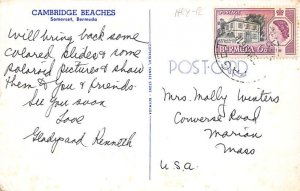 CAMBRIDGE BEACHES
Somerset, Bermuda
Will bring back some
colored slides & some
polaroid pictures & show
them to you & friends.
See you soon
Love
Gladys and Kenneth
POST CARD
BERMUDA
Mrs. Molly Winters
Converse Road
Marian
Mass
U.S.A.